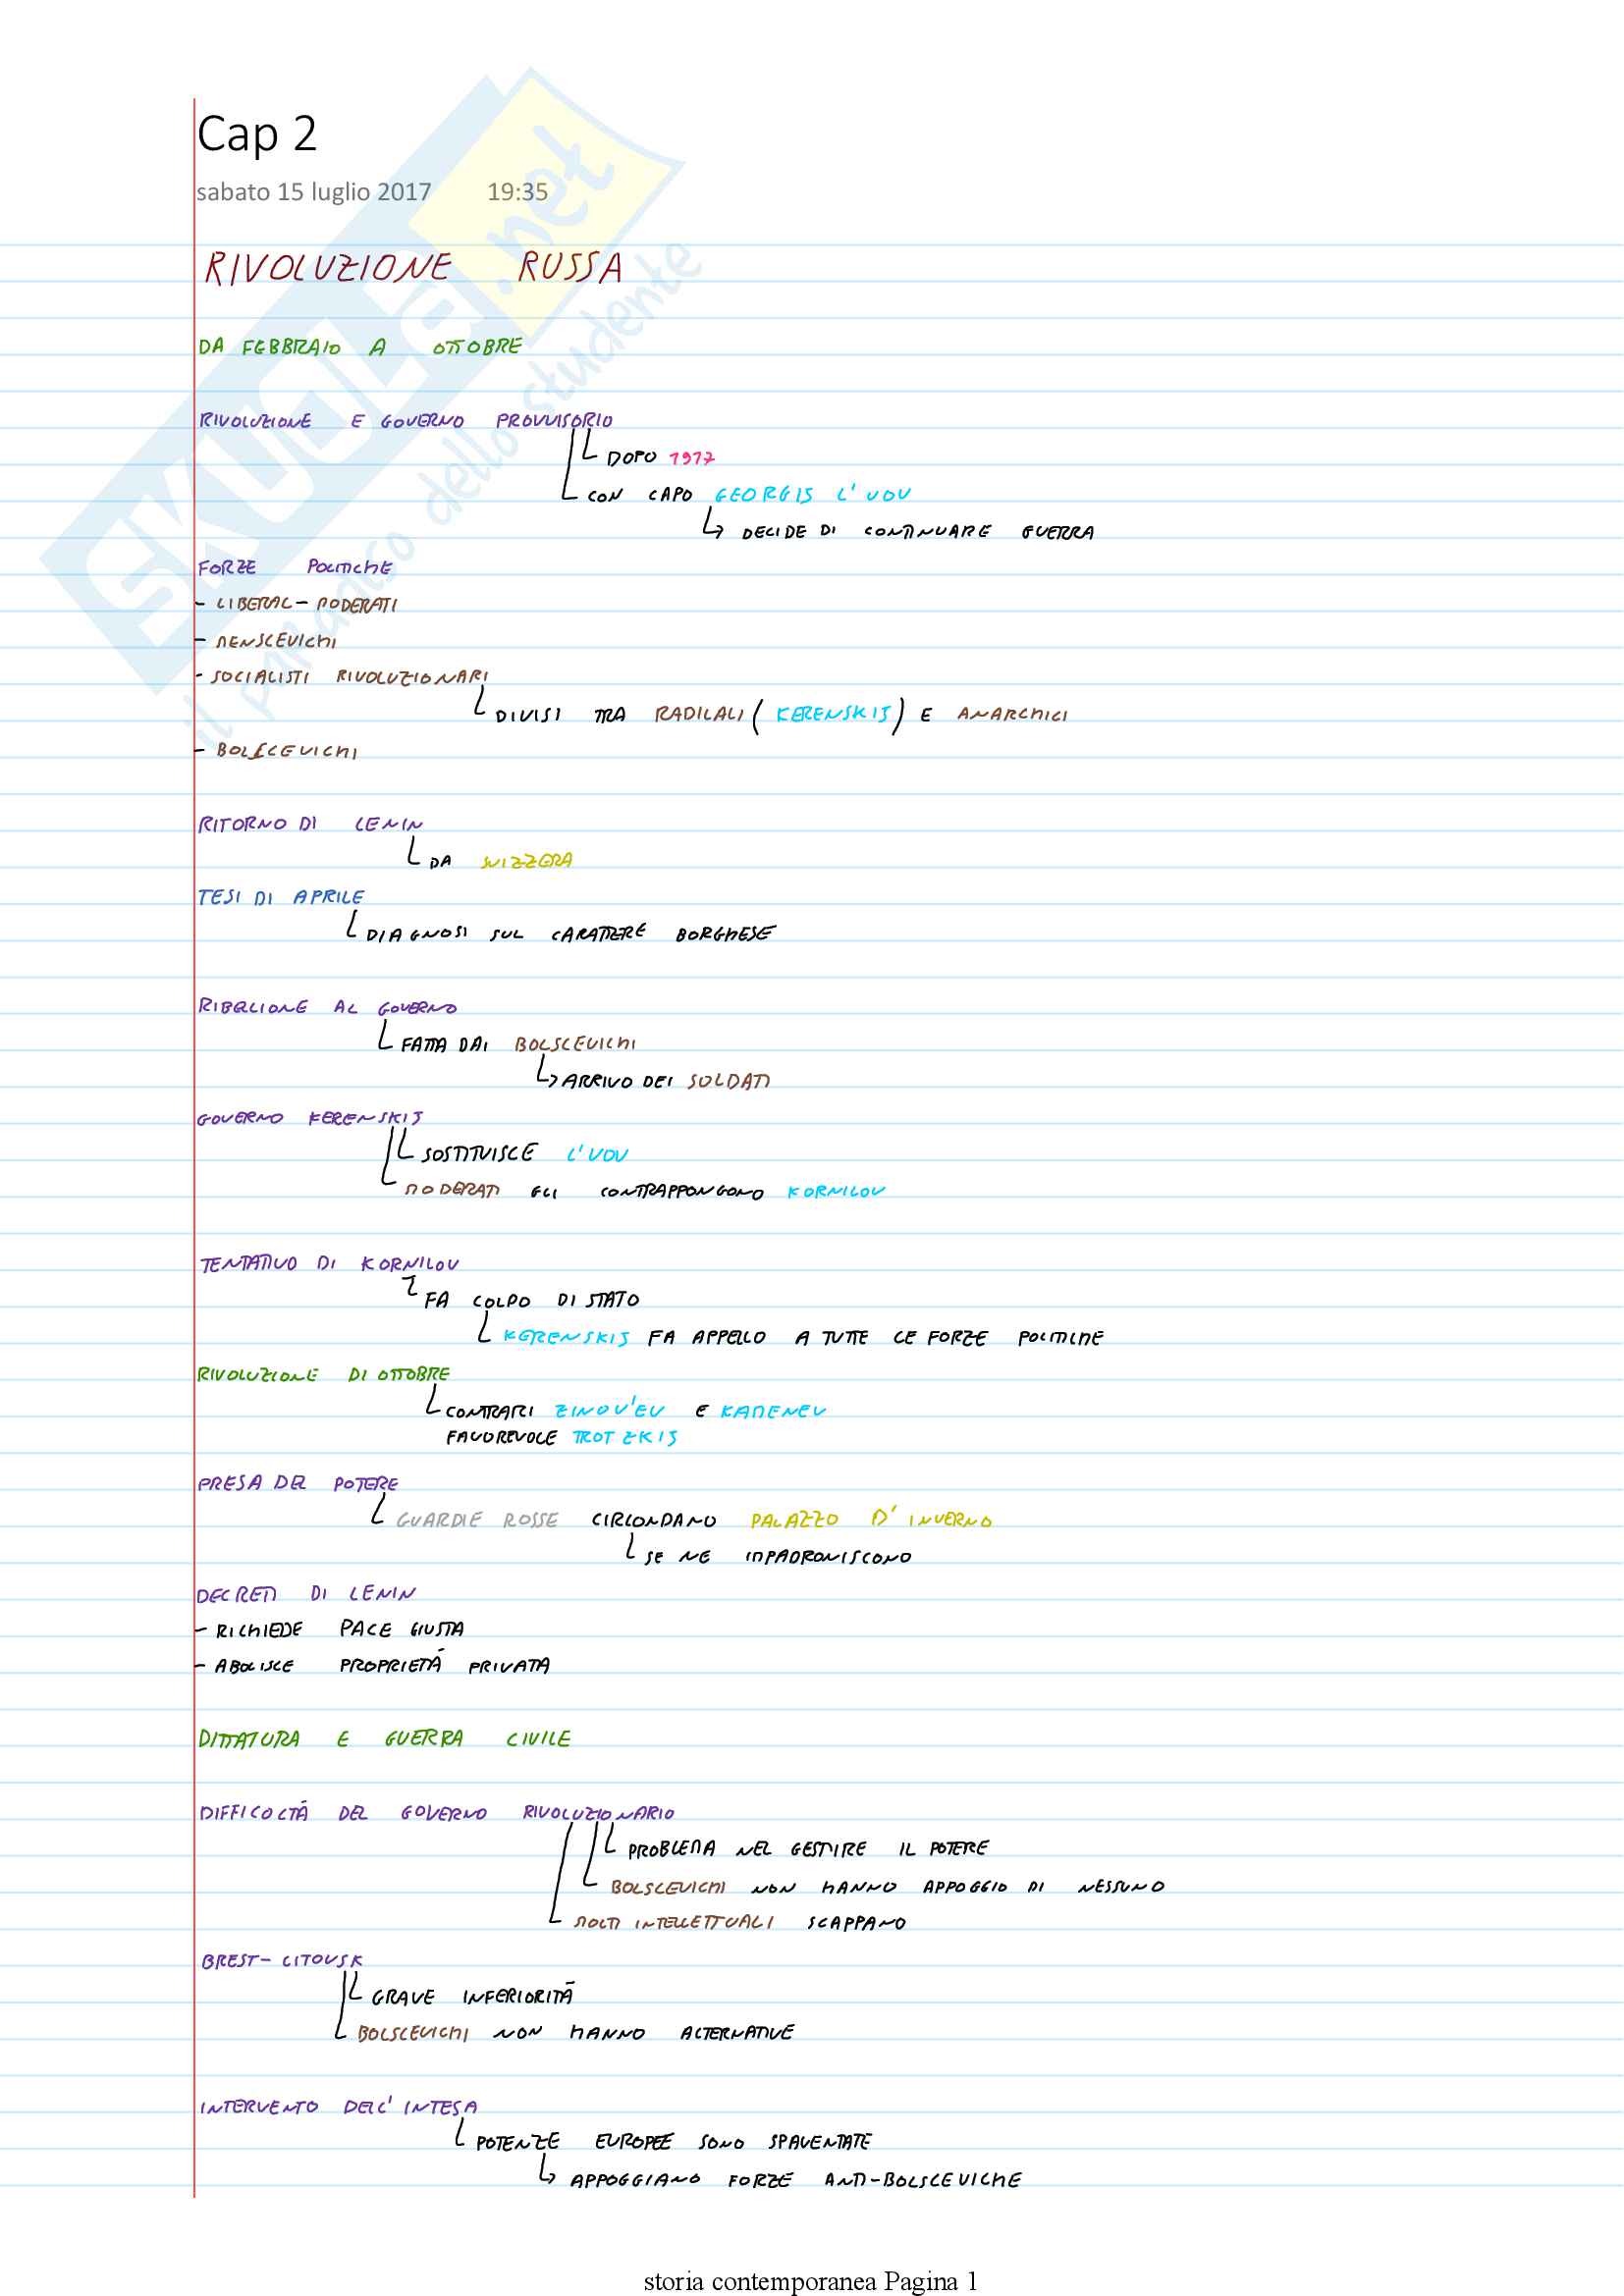 Cap 2
sabato 15 luglio 2017 19:35
RIVOLUZIONE RUSSA
DA FEBBRAIO A OTTOBRE
RIVOLUZIONE E GOVERNO PROVVISORIO
DOPO 1917
CON CAPO GEORGIJ L'VOV
DECIDE DI CONTINUARE GUERRA
FORZE POLITICHE
- LIBERAL-MODERATI
- MENSCEVICHI
- SOCIALISTI RIVOLUZIONARI
DIVISI TRA RADICALI (KERENSKIJ) E ANARCHICI
- BOLSCEVICHI
RITORNO DI LENIN
DA SVIZZERA
TESI DI APRILE
DIAGNOSI SUL CARATTERE BORGHESE
RIBELLIONE AL GOVERNO
FATTA DAI BOLSCEVICHI
ARRIVO DEI SOLDATI
GOVERNO KERENSKIJ
SOSTITUISCE L'VOV
MODERATI GLI CONTRAPPONGONO KORNILOV
TENTATIVO DI KORNILOV
FA COLPO DI STATO
KERENSKIJ FA APPELLO A TUTTE LE FORZE POLITICHE
RIVOLUZIONE DI OTTOBRE
CONTRARI ZINOV'EV E KAMENEV
FAVOREVOLE TROTZKIJ
PRESA DEL POTERE
GUARDIE ROSSE CIRCONDANO PALAZZO D'INVERNO
SE NE IMPADRONISCONO
DECRETI DI LENIN
- RICHIEDE PACE GIUSTA
- ABOLISCE PROPRIETÀ PRIVATA
DITTATURA E GUERRA CIVILE
DIFFICOLTÀ DEL GOVERNO RIVOLUZIONARIO
PROBLEMA NEL GESTIRE IL POTERE
BOLSCEVICHI NON HANNO APPOGGIO DI NESSUNO
MOLTI INTELLETTUALI SCAPPANO
BREST-LITOVSK
GRAVE INFERIORITÀ
BOLSCEVICHI NON HANNO ALTERNATIVE
INTERVENTO DELL'INTESA
POTENZE EUROPEE SONO SPAVENTATE
APPOGGIANO FORZE ANTI-BOLSCEVICHE
storia contemporanea Pagina 1
SKUOLA.net
il paradiso dello studente